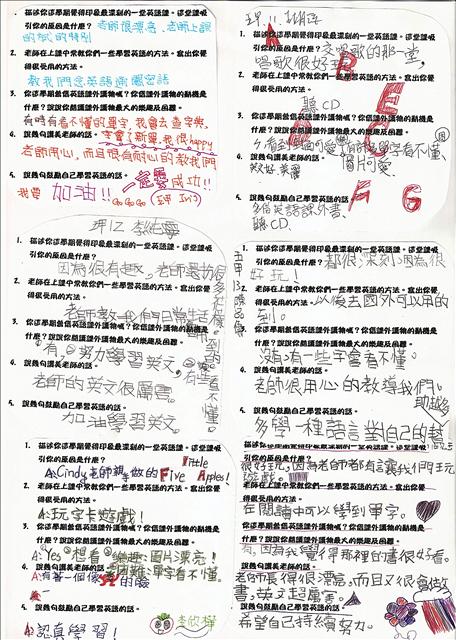 1. 描述你這學期覺得印象最深刻的一堂英語課。這堂課吸
引你的原因是什麼?
老師很漂亮、老師上課
2. 老師在上課中常教你們一些學習英語的方式。寫出你覺
得很受用的方法。
教我們念英語
3. 你這學期兼借英語課外讀物嗎?你借課外讀物的動機是
什麼?說說你閱讀課外讀物最大的樂趣及困難。
有時有看不懂的單字,我會去查字典,
4. 說幾句讚美老師的話。
我很happy
老師用心,而且很有耐心的教我們
5. 說幾句鼓勵自己學習英語的話。
加油!! 一定要成功!!
Go Go Go
1. 描述你這學期覺得印象最深刻的一堂英語課。這堂課吸
引你的原因是什麼?
交唱歌的那一堂,
唱歌很好玩
2. 老師在上課中常教你們一些學習英語的方式。寫出你覺
得很受用的方法。
聽CD、
3. 你這學期兼借英語課外讀物嗎?你借課外讀物的動機是
什麼?說說你閱讀課外讀物最大的樂趣及困難。
單字看不懂、
圖片可愛
4. 說幾句讚美老師的話。
5. 說幾句鼓勵自己學習英語的話。
多借英語課外書、
聽CD、
1. 描述你這學期覺得印象最深刻的一堂英語課。這堂課吸
引你的原因是什麼?
因為很有趣,老師還
2. 老師在上課中常教你們一些學習英語的方式。寫出你覺
得很受用的方法。
老師教我們日常生活
3. 你這學期兼借英語課外讀物嗎?你借課外讀物的動機是
什麼?說說你閱讀課外讀物最大的樂趣及困難。
有,努力學習英文,有些看不懂。
4. 說幾句讚美老師的話。
老師的英文很厲害。
5. 說幾句鼓勵自己學習英語的話。
加油學習英文。
1. 描述你這學期覺得印象最深刻的一堂英語課。這堂課吸
引你的原因是什麼?
都很深刻,因為很
好玩!
2. 老師在上課中常教你們一些學習英語的方式。寫出你覺
得很受用的方法。
以後去國外可以用的
到。
3. 你這學期兼借英語課外讀物嗎?你借課外讀物的動機是
什麼?說說你閱讀課外讀物最大的樂趣及困難。
沒有,有一些字會看不懂。
4. 說幾句讚美老師的話。
老師很用心的教導我們。
5. 說幾句鼓勵自己學習英語的話。
多學一種語言對自己的幫
助越多
1. 描述你這學期覺得印象最深刻的一堂英語課。這堂課吸
引你的原因是什麼?
A:Cindy老師親手做的Five little Apples!
2. 老師在上課中常教你們一些學習英語的方式。寫出你覺
得很受用的方法。
A:玩字卡遊戲!
3. 你這學期兼借英語課外讀物嗎?你借課外讀物的動機是
什麼?說說你閱讀課外讀物最大的樂趣及困難。
A:Yes 想看 樂趣:圖片漂亮!
困難:單字看不懂。
4. 說幾句讚美老師的話。
的臉
5. 說幾句鼓勵自己學習英語的話。
A:認真學習!
1. 描述你這學期覺得印象最深刻的一堂英語課。這堂課吸
引你的原因是什麼?
很好玩,因為老師都有讓我們玩
遊戲。
2. 老師在上課中常教你們一些學習英語的方式。寫出你覺
得很受用的方法。
在閱讀中可以學到單字。
3. 你這學期兼借英語課外讀物嗎?你借課外讀物的動機是
什麼?說說你閱讀課外讀物最大的樂趣及困難。
有,因為我覺得那裡的書很好看。
4. 說幾句讚美老師的話。
老師長得很漂亮,而且又很會教
書,英文超厲害。
5. 說幾句鼓勵自己學習英語的話。
希望自己持續努力。